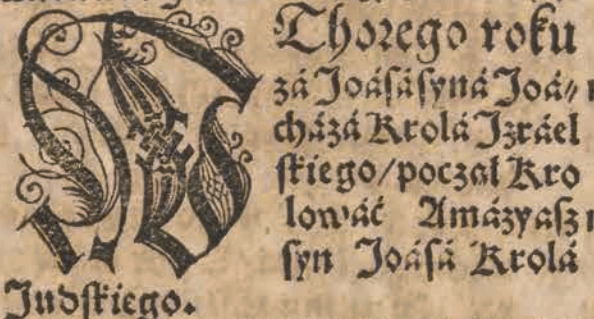 WThorego roku
zá Joásá syná Joá⸗
cházá Krolá Izráel
skiego/ począł Kro
lowáć Amázyasz
syn Joásá Krolá
Judskiego.